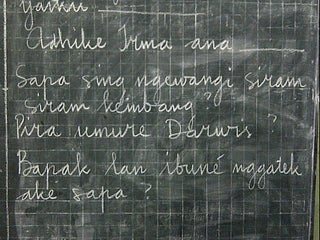 yaiku
Adhike Irma ana
Sapa sing ngewangi siram
siram kembang?
Pira umure Darwis?
Bapak lan ibuné nggatek
ake sapa?